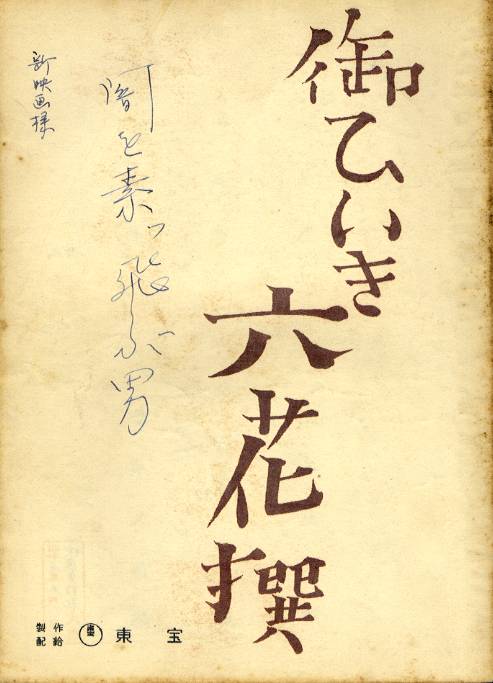 御ひいき
六花撰
闇を素ッ飛ぶ男
新映画様
製作
配給
東宝